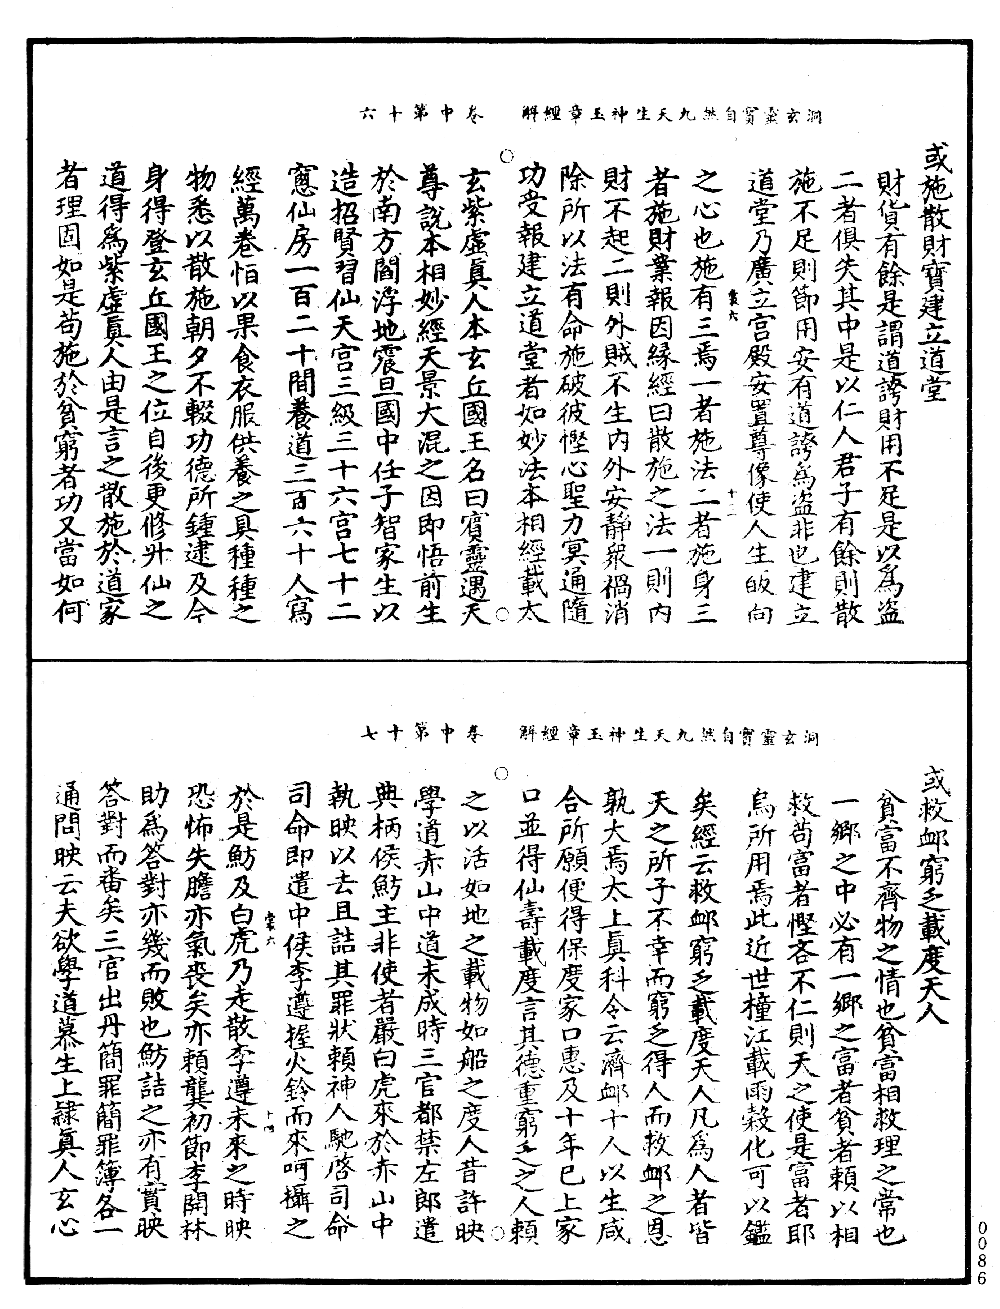 洞玄靈寶自然九天生神玉章經解　卷中第十六
或施散財寶建立道堂
財貨有餘是謂道誇財用不足是以為盜
二者俱失其中是以仁人君子有餘則散
施不足則節用安有道誇為盜非也建立
道堂乃廣立宮殿安置尊像使人生皈向
裳六　十二
之心也施有三焉一者施法二者施身三
者施財業報因緣經曰散施之法一則內
財不起二則外賊不生內外安靜衆禍消
除所以法有命施破彼慳心聖力冥通隨
功受報建立道堂者如妙法本相經載太
玄紫虛真人本玄丘國王名曰賓靈遇天
尊說本相妙經天景大混之因即悟前生
於南方閻浮地震旦國中任子智家生以
造招賢習仙天宮三級三十六宮七十二
窻仙房一百二十間養道三百六十人寫
經萬卷恒以果食衣服供養之具種種之
物悉以散施朝夕不輟功德所鍾逮及今
身得登玄丘國王之位自後更修升仙之
道得為紫虛真人由是言之散施於道家
者理固如是苟施於貧窮者功又當如何
洞玄靈寶自然九天生神玉章經解　卷中第十七
或救䘏窮乏載度天人
貧富不齊物之情也貧富相救理之常也
一鄉之中必有一鄉之富者貧者賴以相
救苟富者慳吝不仁則天之使是富者耶
烏所用焉此近世橦江載雨穀化可以鑑
矣經云救䘏窮乏載度天人凡為人者皆
天之所子不幸而窮乏得人而救䘏之恩
孰大焉太上真科令云濟䘏十人以生咸
合所願便得保度家口惠及十年已上家
口並得仙壽載度言其德重窮乏之人賴
之以活如地之載物如船之度人昔許映
學道赤山中道未成時三官都禁左郎遣
典柄侯魴主非使者嚴白虎來於赤山中
執映以去且詰其罪狀賴神人馳啓司命
司命即遣中侯李遵握火鈴而來呵攝之
裳六　十四
於是魴及白虎乃走散李遵未來之時映
恐怖失膽亦氣喪矣亦賴龔初節李開林
助為答對亦幾而敗也魴詰之亦有賞映
答對而番矣三官出丹簡罪簡罪簿各一
通問映云夫欲學道慕生上隸真人玄心
0086